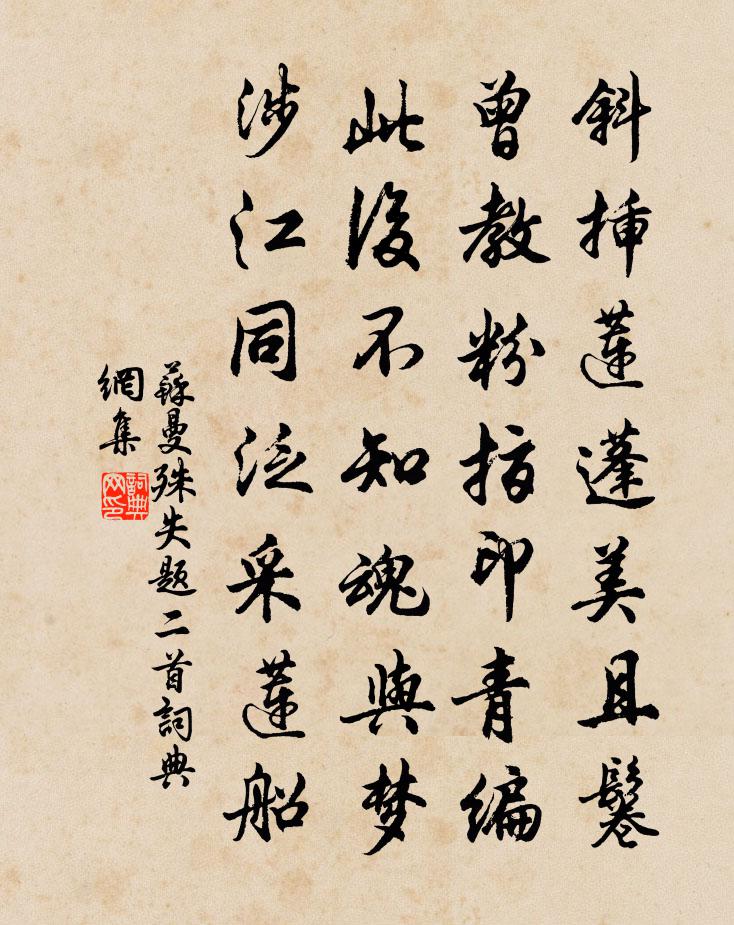 斜挿蓮蓬美且鬈
曾教粉指印青編
此後不知魂與梦
涉江同泛采蓮船
蘇曼殊失题二首詞典
網集
詞典
网印